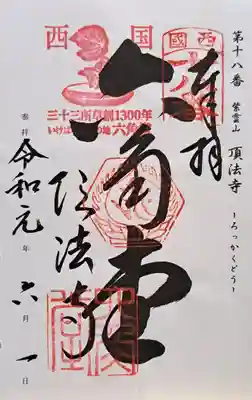 第十八番 紫雲山 頂法寺 -ろっかくどう-
奉拝
西国
三十三所草創1300年
いけばな発祥の地 六角
六角堂
頂法寺
参拝 令和元年六月一日